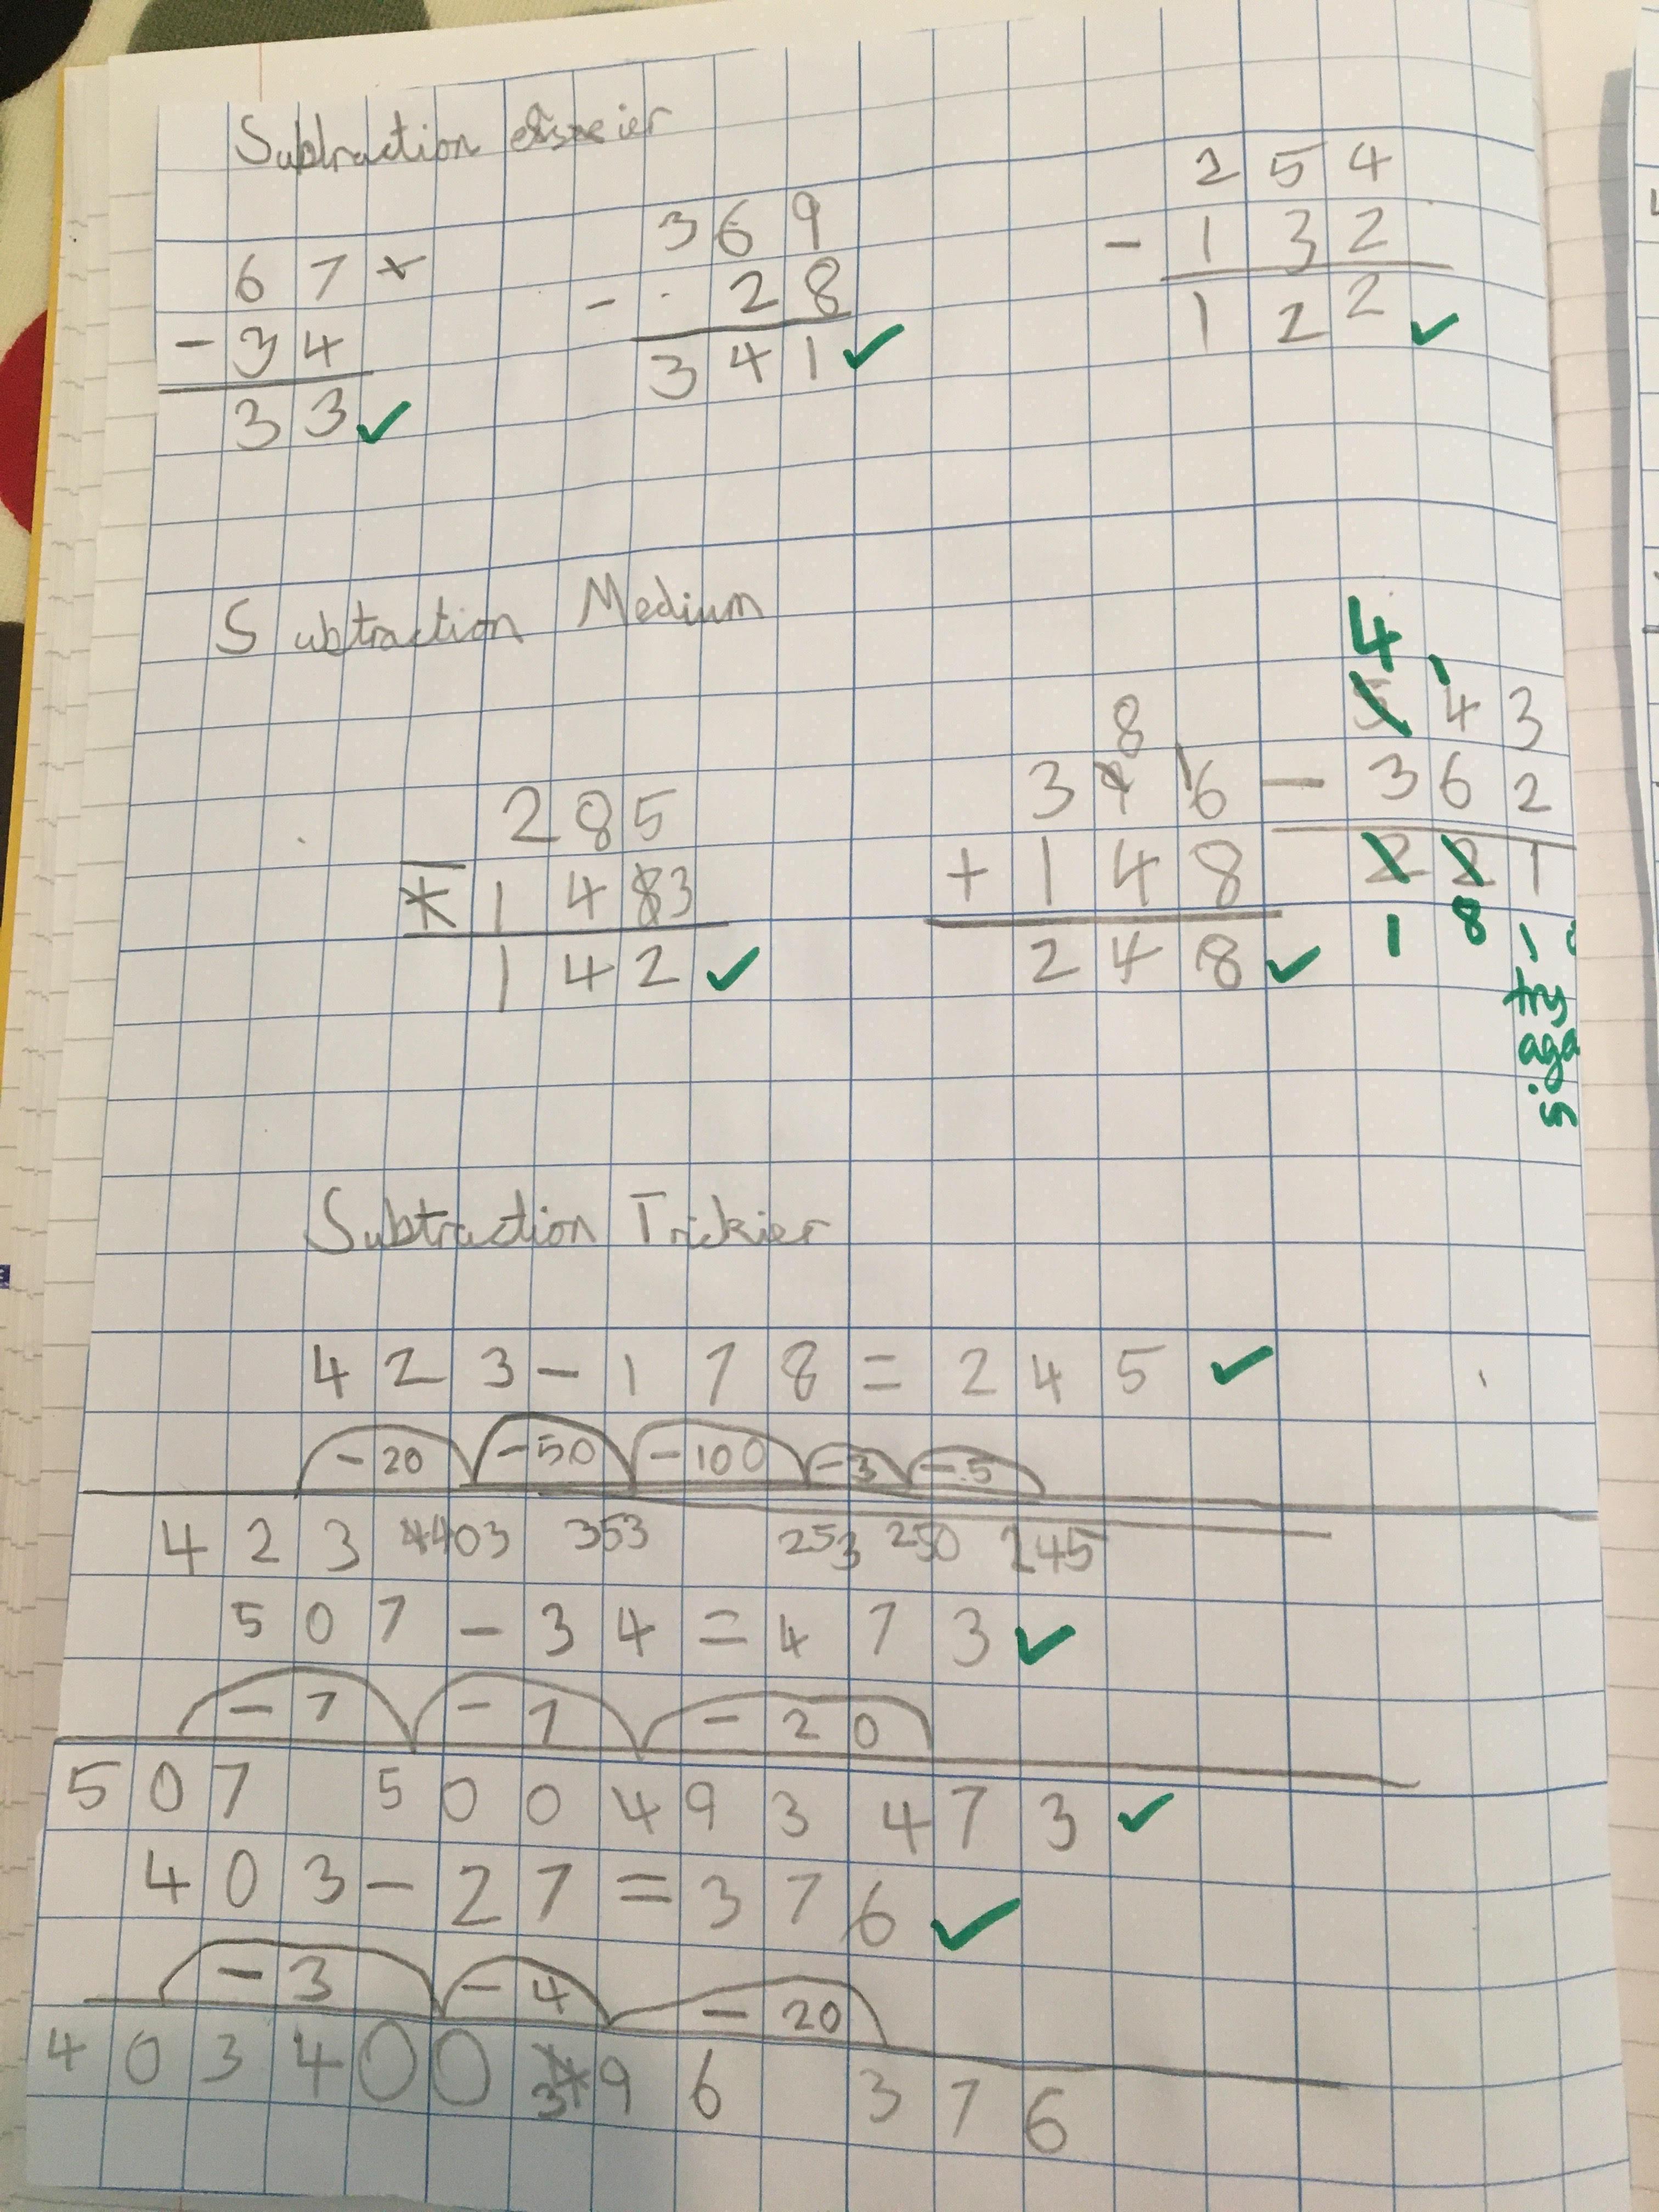 Subtraction easier
67
- 34
33 ✓
369
- 28
341 ✓
254
- 132
122 ✓
Subtraction Medium
285
- 143
142 ✓
8
396
+ 148
248 ✓
4
543
- 362
221
181
try
aga
Subtraction Trickier
423 - 178 = 245 ✓
-20 -50 -100 -3 -5
423 403 353 253 250 245
507 - 34 = 473 ✓
-7 -7 -20
507 500 493 473 ✓
403 - 27 = 376 ✓
-3 -4 -20
403 400 396 376